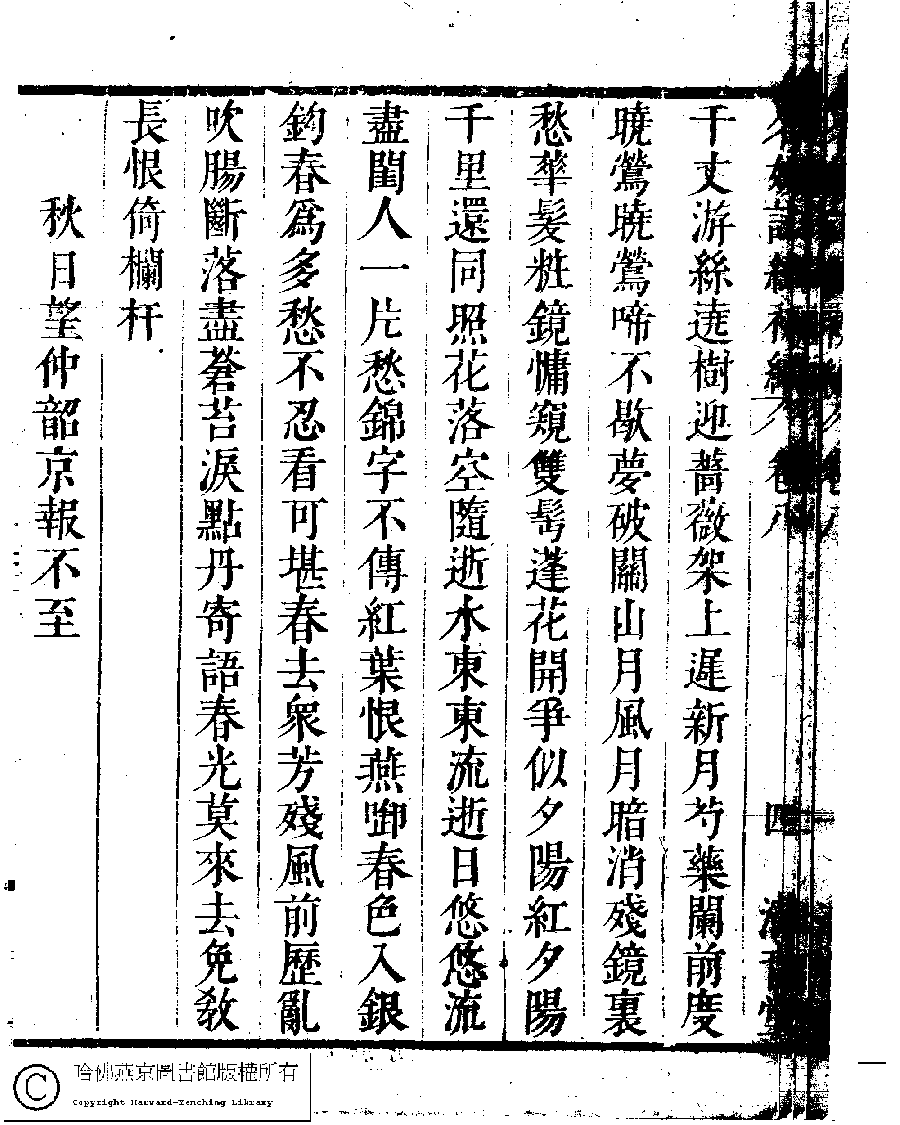 千丈游絲遶樹迎薔薇架上遲新月芍藥闌前度
曉鶯曉鶯啼不歇夢破關山月風月暗消殘鏡裏
愁華髮粧鏡慵窺雙髩蓬花開爭似夕陽紅夕陽
千里還同照花落空隨逝水東東流逝日悠悠流
盡閨人一片愁錦字不傳紅葉恨燕啣春色入銀
鉤春爲多愁不忍看可堪春去衆芳殘風前歷亂
吹腸斷落盡蒼苔淚點丹寄語春光莫來去免敎
長恨倚欄杆
秋日望仲韶京報不至
哈佛燕京圖書館版權所有
Copyright Harvard-Yenching Library